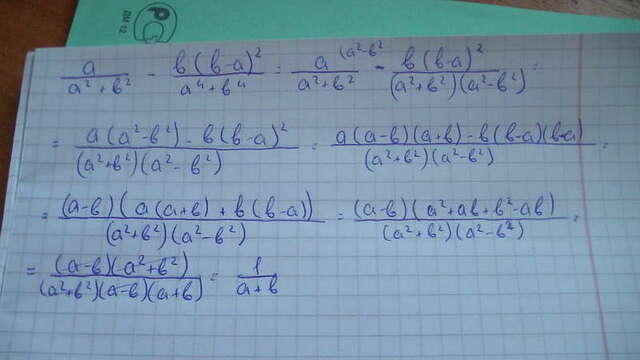 ПМ 12
a/(a²+b²) - b(b-a)²/(a⁴+b⁴) = a (a²-b²/(a²+b²) - b(b-a)²/((a²+b²)(a²-b²)) =
= (a(a²-b²) - b(b-a)²)/((a²+b²)(a²-b²)) = (a(a-b)(a+b) - b(b-a)(b-a))/((a²+b²)(a²-b²)) =
= (a-b)(a(a+b) + b(b-a))/((a²+b²)(a²-b²)) = (a-b)(a²+ab+b²-ab)/((a²+b²)(a²-b²)) =
= (a-b)(a²+b²)/((a²+b²)(a-b)(a+b)) = 1/(a+b)